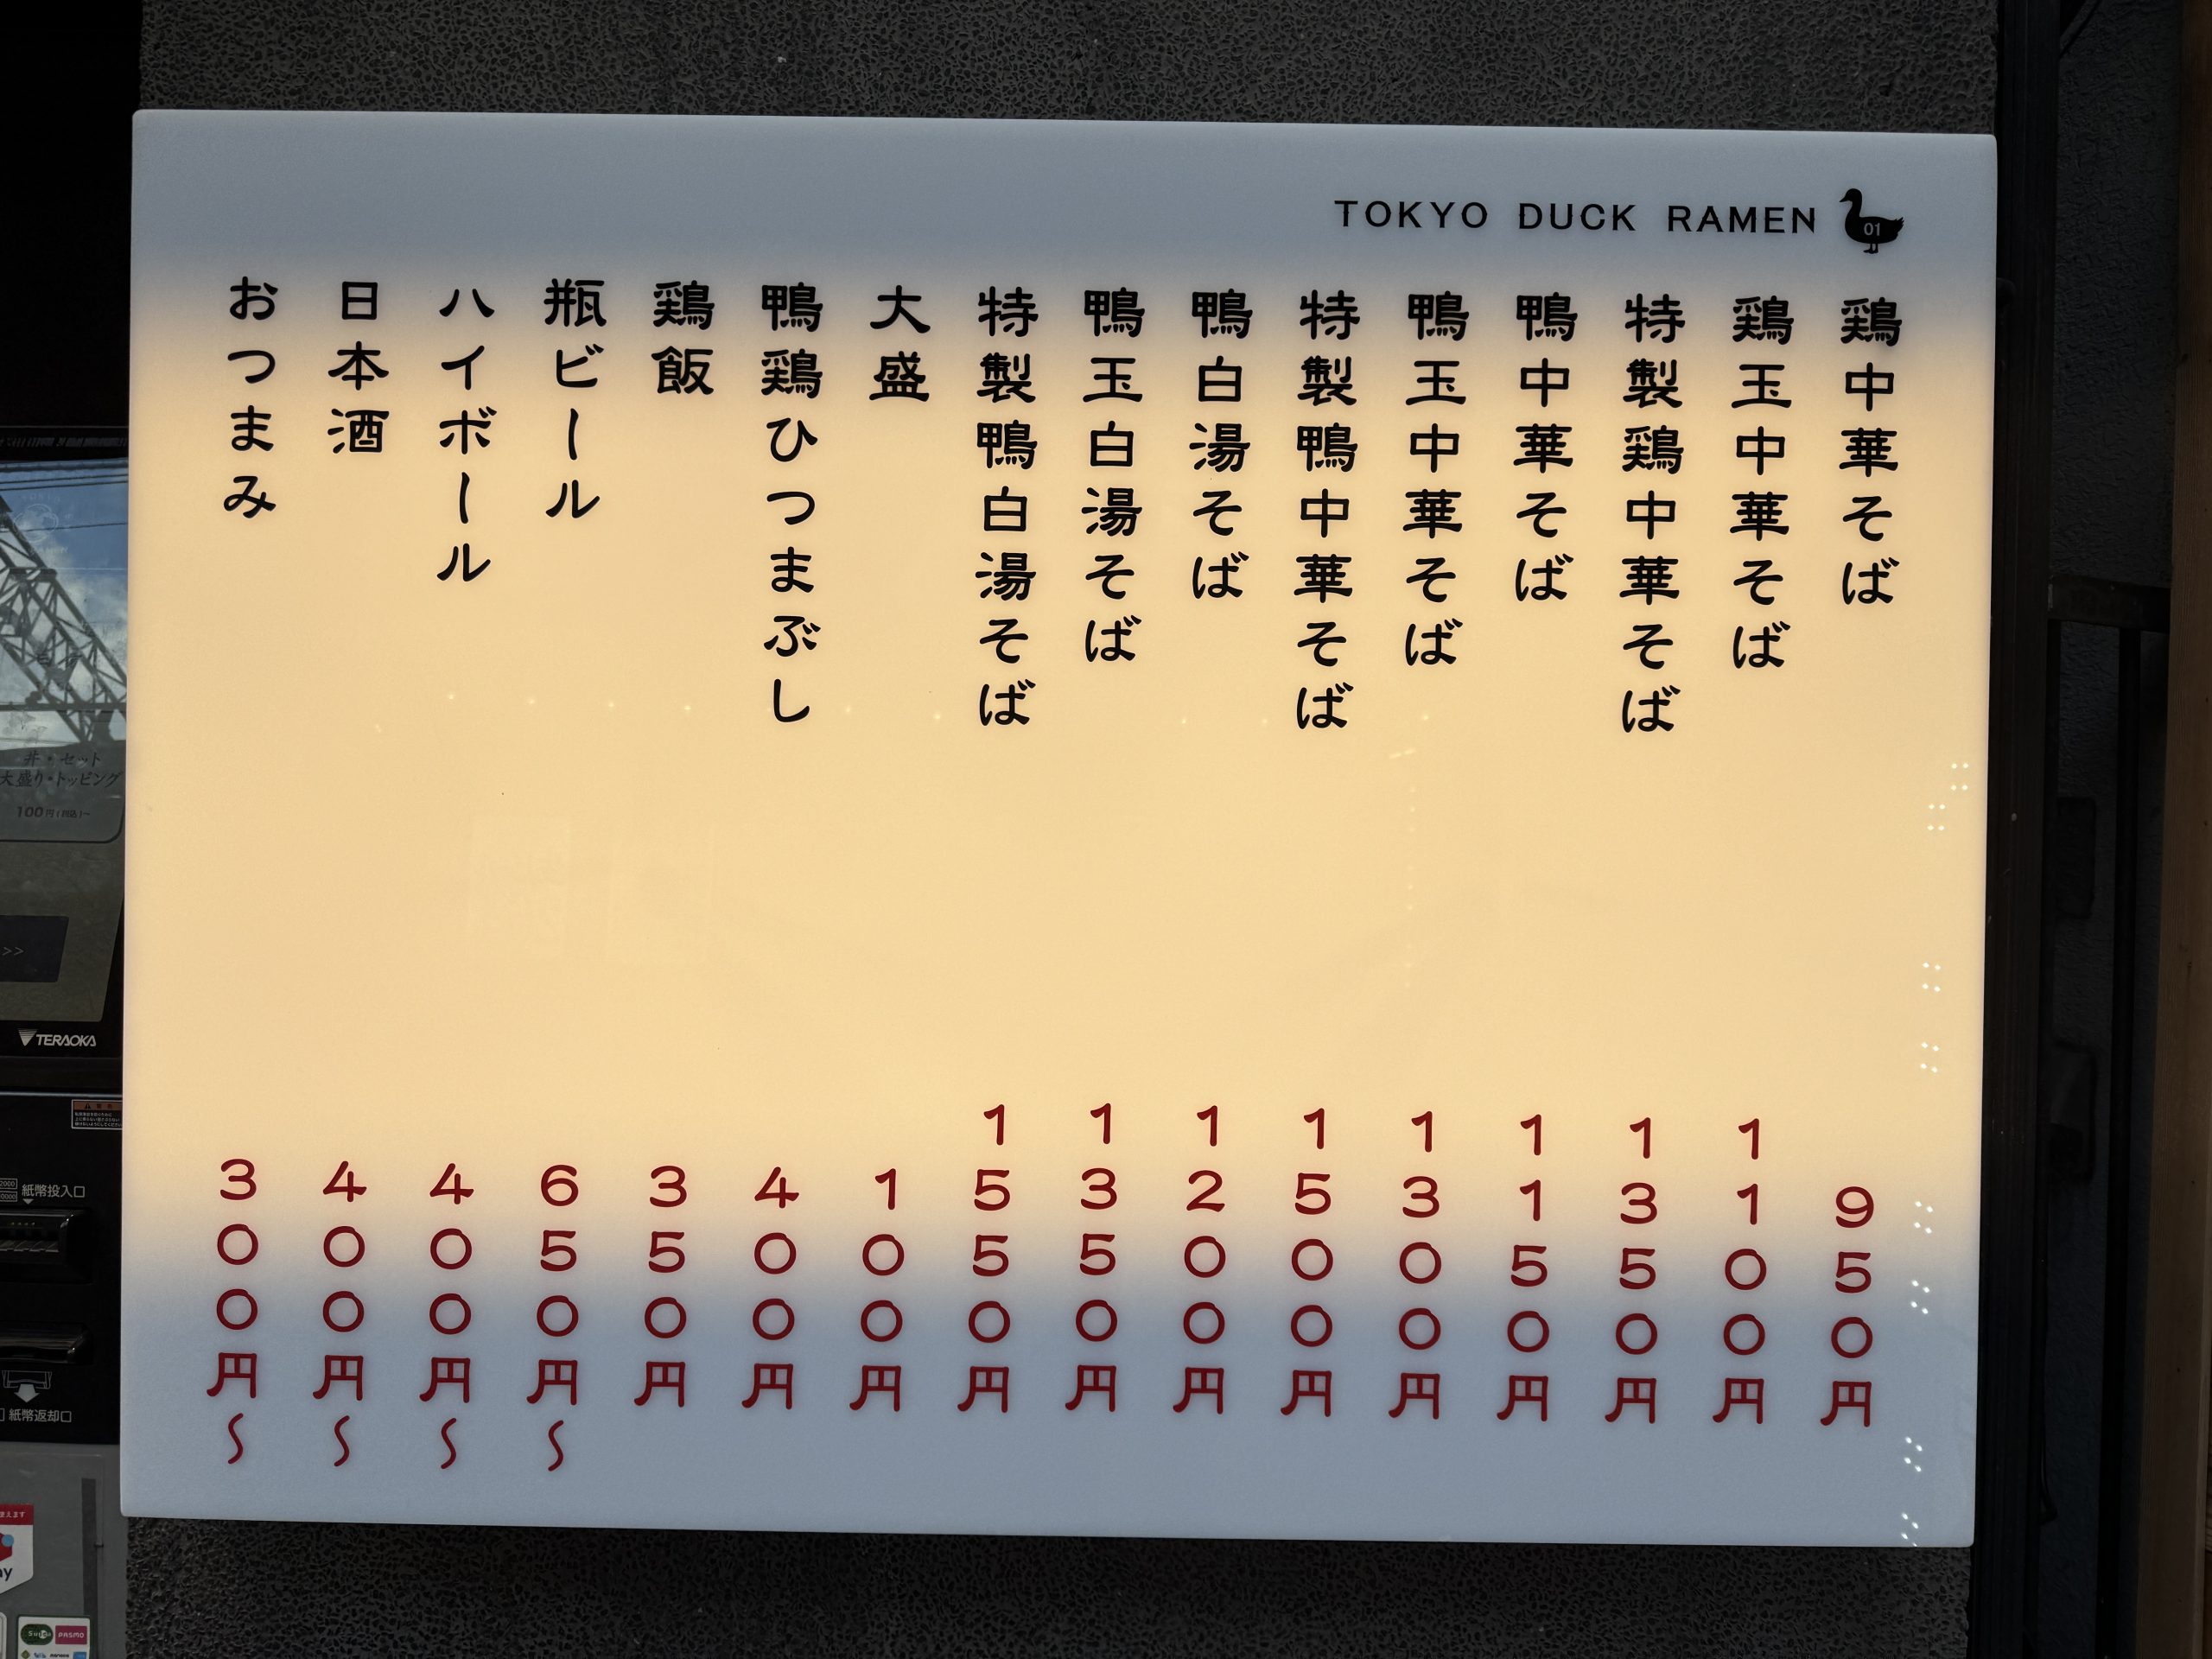 TOKYO DUCK RAMEN
01
鶏中華そば 950円
鶏玉中華そば 1100円
特製鶏中華そば 1350円
鴨中華そば 1150円
鴨玉中華そば 1300円
特製鴨中華そば 1500円
鴨白湯そば 1200円
鴨玉白湯そば 1350円
特製鴨白湯そば 1550円
大盛 100円
鴨鶏ひつまぶし 400円
鶏飯 350円
瓶ビール 650円〜
ハイボール 400円〜
日本酒 400円〜
おつまみ 300円〜
丼・セット
大盛り・トッピング
100円(税込)~
>>
TERAOKA
紙幣投入口
紙幣返却口
Suica
PASMO